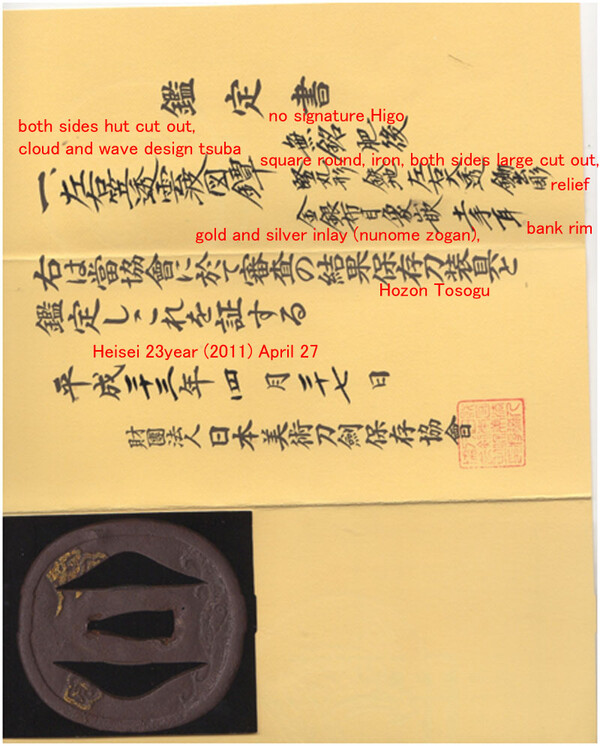 鑑定書
no signature Higo
無銘肥後
both sides hut cut out,
cloud and wave design tsuba
一、左右笠透雲波図鐔
square round, iron, both sides large cut out,
竪丸形 鉄地 左右大透 鋤彫
relief
金銀布目象嵌 土手耳
bank rim
gold and silver inlay (nunome zogan),
右は當協會に於て審査の結果保存刀装具と
Hozon Tosogu
鑑定しこれを証する
Heisei 23year (2011) April 27
平成二十三年四月二十七日
財團法人日本美術刀劍保存協會